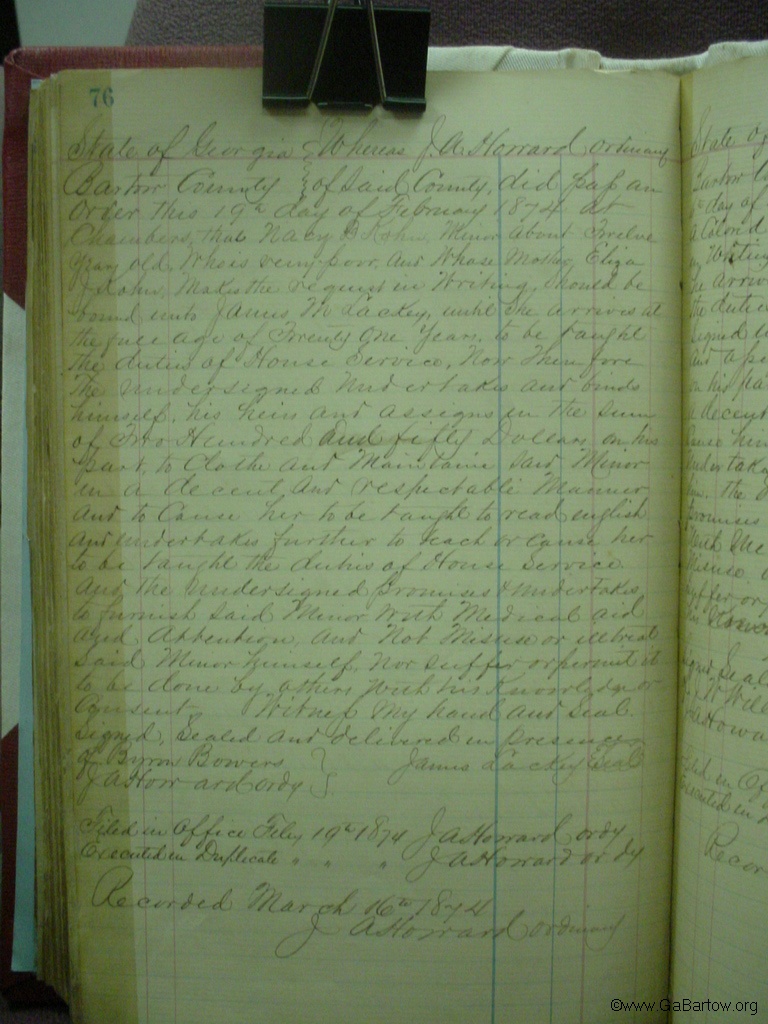 76
State of Georgia } Whereas J. A. Howard ordinary
Bartow County } of Said County, did pass an
Order this 19th day of February 1874 at
Chambers, that Nacy Minor about Twelve
Years old, Who is very poor, And Whose Mother, Eliza
Makes the request in Writing, Should be
bound unto James M Lackey, until She arrives at
the full age of Twenty One Years, to be taught
the duties of House Service, Now Therefore
The undersigned Undertakes and binds
himself, his heirs and assigns in the Sum
of Two Hundred and fifty Dollars on his
part, to Clothe and Maintain Said Minor
in a decent and respectable Manner
and to Cause her to be taught to read english
and undertakes further to teach or Cause her
to be taught the duties of House Service
And the undersigned promises & undertakes
to furnish Said Minor With Medical aid
and Attention, And Not Misuse or illtreat
Said Minor himself, Nor Suffer or permit it
to be done by others With his Knowledge or
Consent Witness My hand and Seal.
Signed, Sealed and delivered in presence
of Byron Bowers } James Lackey Seal
J A Howard ordy }
Filed in Office Feby 19th 1874 J A Howard ordy
Executed in Duplicate " " " J A Howard ordy
Recorded March 16th 1874
J A Howard ordinary
State of
Bartow
day of
a Colored
in Writing
the duties
Signed
a decent
promises
With Me
Recor
©www.GaBartow.org